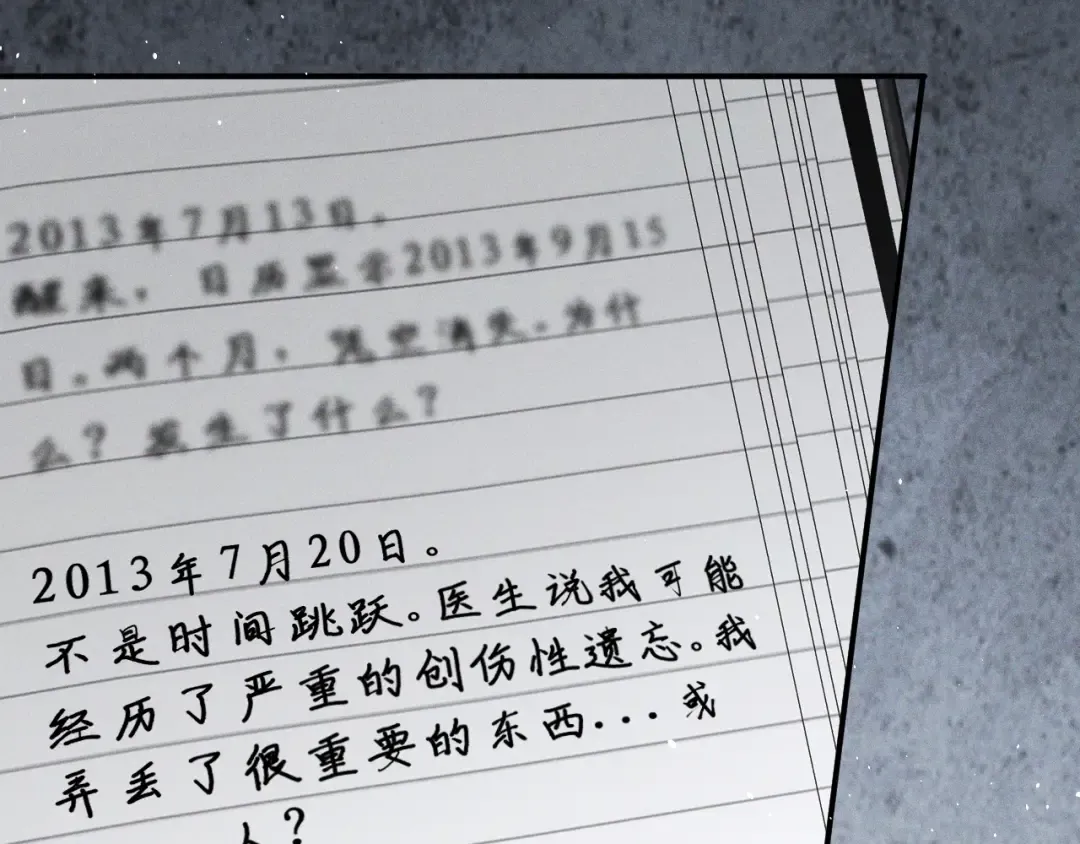 2013年7月13日。
醒来，日历显示2013年9月15
日。两个月，凭空消失。为什
么？发生了什么？
2013年7月20日。
不是时间跳跃。医生说我可能
经历了严重的创伤性遗忘。我
弄丢了很重要的东西...或
人？